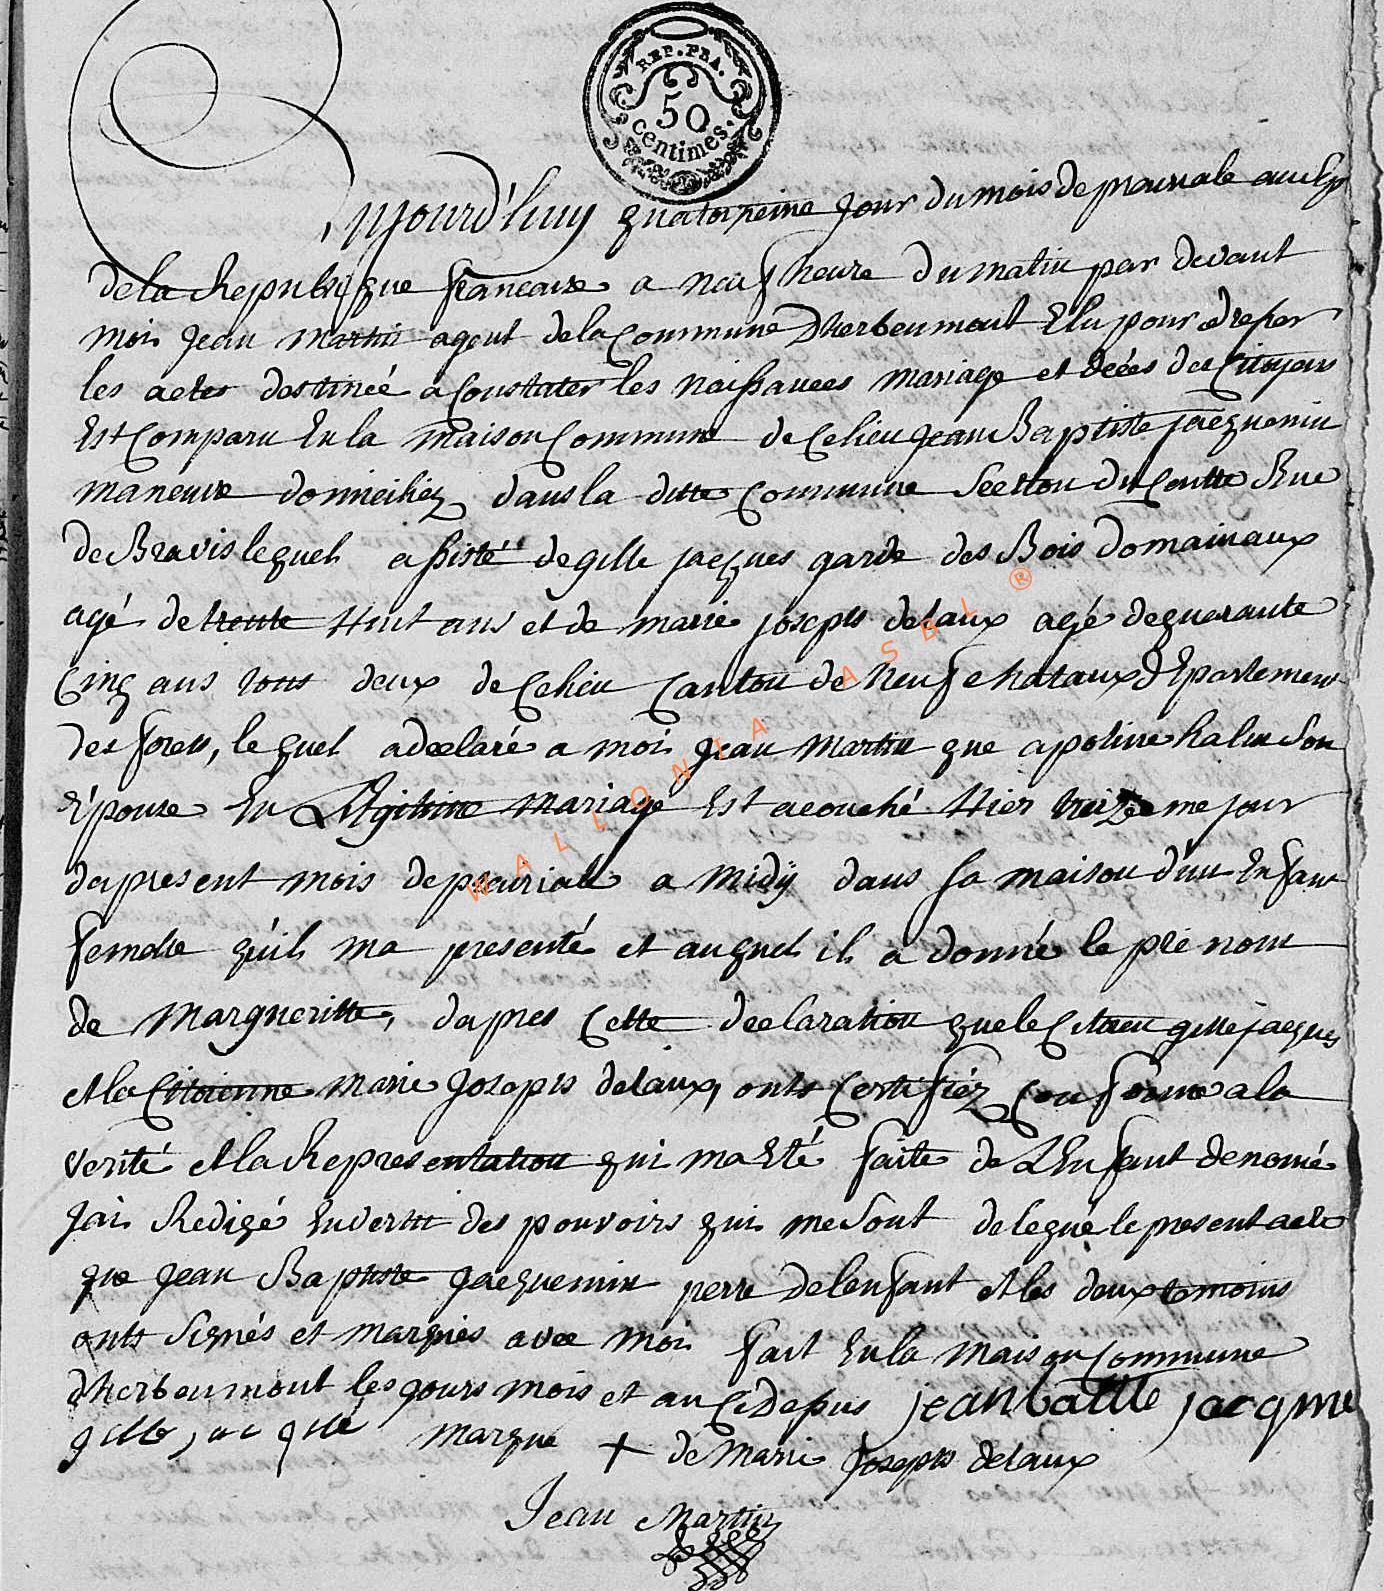 REP. FRA.
50
centimes.
Aujourd'huy quatorzeime jour du mois de prairiale an
de la Republique francaise a neuf heure du matin par devant
moi Jean Martin agent de la Commune Dherbeumont Elu pour dresser
les actes destinée a Constater les Naissances mariage et décés des Citoyens
Est Comparu En la maison Commune de Celieu Jean Baptiste jacquemin
maneuvre domicihez dans la ditte Commune Section du Rue
de Bravis lequel assisté de gille jacques garde des Bois domainaux
agé de trente Huit ans et de marie joseph delaux agé de quarante
Cinq ans tous deux de Celieu Canton de Neufchataux Departement
des forets, lequel a declaré a moi Jean Martin que apoline halin Son
Epouse En Legitime Mariage Est acouché Hier treizeme jour
du present mois de prairiale a Midy dans sa maison d'un Enfant
femelle qu'il ma presenté et auquel il a donné le pré nom
de Margueritte, dapres Cette declaration que le Citoien gille jacques
et la Citoienne Marie Joseph delaux, onts Certifiéz Conforme a la
verité et la Representation qui ma Eté faite de LEnfant denomé
Jai Redigé En vertu des pouvoirs qui me Sont delegué le present acte
que Jean Baptiste Jacquemin perre de lenfant et les deux temoins
onts Signés et marqués avec moi fait En la Maison Commune
dherbeumont les jours mois et an Cidessus jean batiste jacqme
gille jacque marque + de Marie Joseph delaux
Jean Martin
WALLONIA ASBL ®